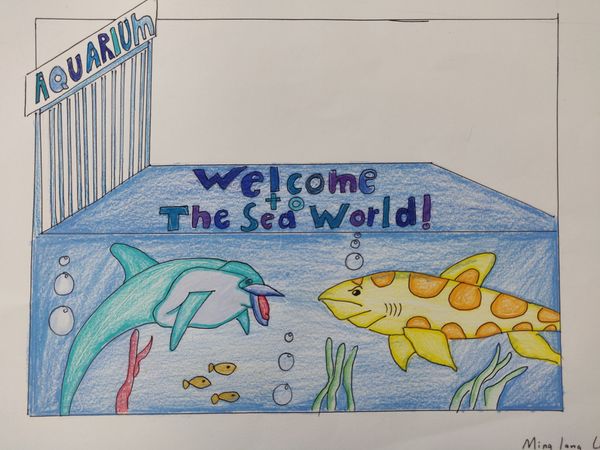 AQUARIUm
Welcome
to
The Sea World!
Ming Jang